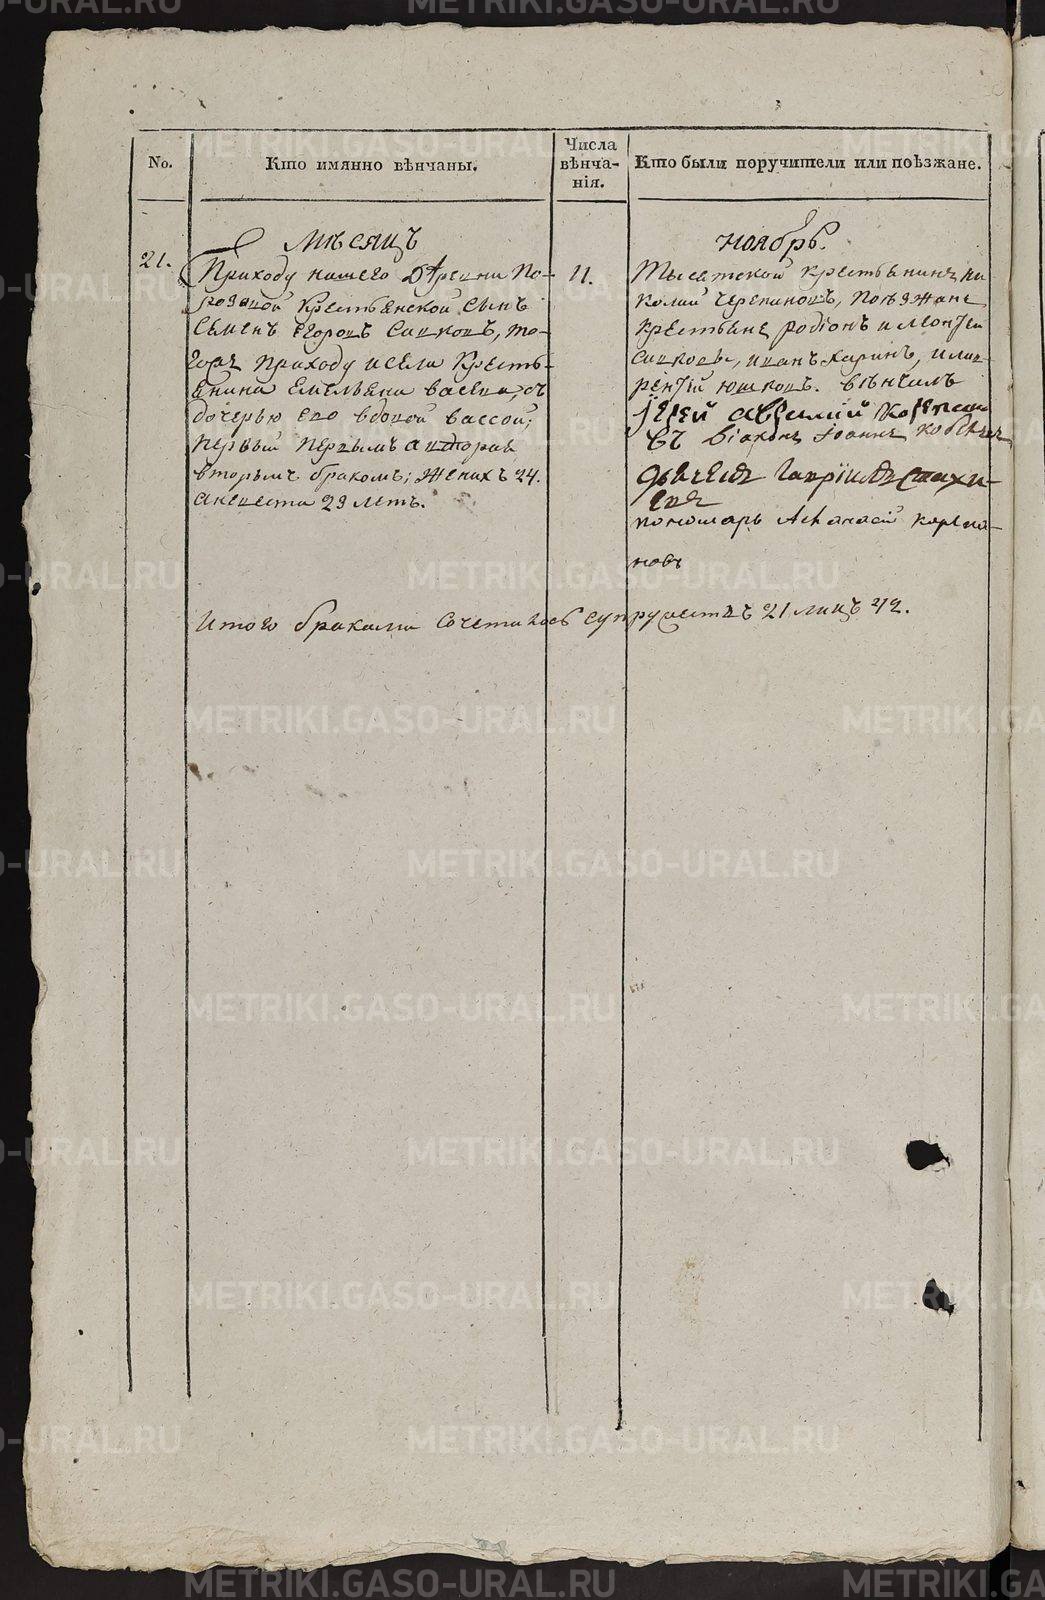 No.
Кто имянно вѣнчаны.
Числа
вѣнча-
нія.
Кто были поручители или поѣзжане.
Мѣсяцъ
ноябрь.
21.
Приходу нашего Деревни По-
крестьянской сынъ
Семенъ Егоровъ Сапковъ, то-
гожъ приходу и села кресть-
янина Емельяна васева, съ
дочерью ево вдовой вассой;
первый первымъ а вторая
вторымъ бракомъ; Жениху 24.
а невеста 23 летъ.
11.
Тысетской крестьянинъ Ни-
колай Черепановъ, Поѣзжане
крестьяне родіонъ и леонтей
Сапковы, иванъ харинъ, и лав-
рентій юшковъ. вѣнчалъ
Іерей
въ діаконъ Іоаннъ
дьячекъ Гавріилъ Стахи-
евъ
пономарь Аѳанасій карпа-
новъ
Итого браками сочеталось супружествъ 21 лицъ 42.
METRIKI.GASO-URAL.RU